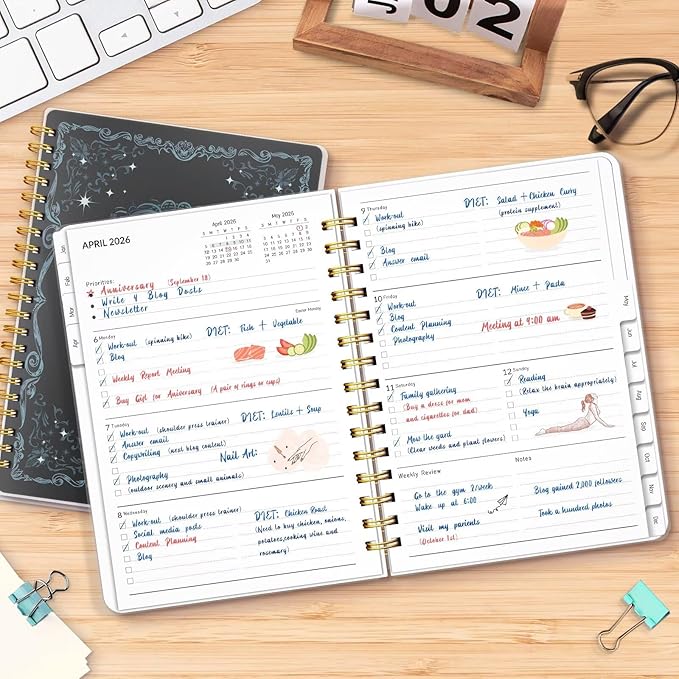 02
Jan
Feb
Mar
Apr
APRIL 2026
April 2026
S M T W T F S
1 2 3 4
5 6 7 8 9 10 11
12 13 14 15 16 17 18
19 20 21 22 23 24 25
26 27 28 29 30
May 2026
S M T W T F S
1 2
3 4 5 6 7 8 9
10 11 12 13 14 15 16
17 18 19 20 21 22 23
24 25 26 27 28 29 30
31
Priorities:
Anniversary (September 18)
Write 4 Blog Posts
Newsletter
6 Monday
Easter Monday
Work-out (spinning bike)
Blog
DIET: Fish + Vegetable
Weekly Report Meeting
Buy Gift for Aniversary (A pair of rings or cups)
7 Tuesday
Work-out (shoulder press trainer)
Answer email
Copywriting (next blog content)
DIET: Lentils + Soup
Nail Art:
Photography
(outdoor scenery and small animals)
8 Wednesday
Work-out (shoulder press trainer)
Social media posts
Content Planning
Blog
DIET: Chicken Roast
(Need to buy chicken, onions,
potatoes,cooking wine and
rosemary)
9 Thursday
Work-out
(spinning bike)
DIET: Salad + Chicken Curry
(protein supplement)
Blog
Answer email
10 Friday
Work-out
Blog
Content Planning
Photography
DIET: Mince + Pasta
Meeting at 9:00 am
11 Saturday
Family gathering
(Buy a dress for mom
and cigarettes for dad)
Mow the yard
(Clear weeds and plant flowers)
12 Sunday
Reading
(Relax the brain appropriately)
Yoga
Weekly Review
Go to the gym 2/week
Wake up at 6:00
Visit my parients
(October 1st)
Notes
Blog gained 2,000 followers
Took a hundred photos
May
Jun
Jul
Aug
Sep
Oct
Nov
Dec